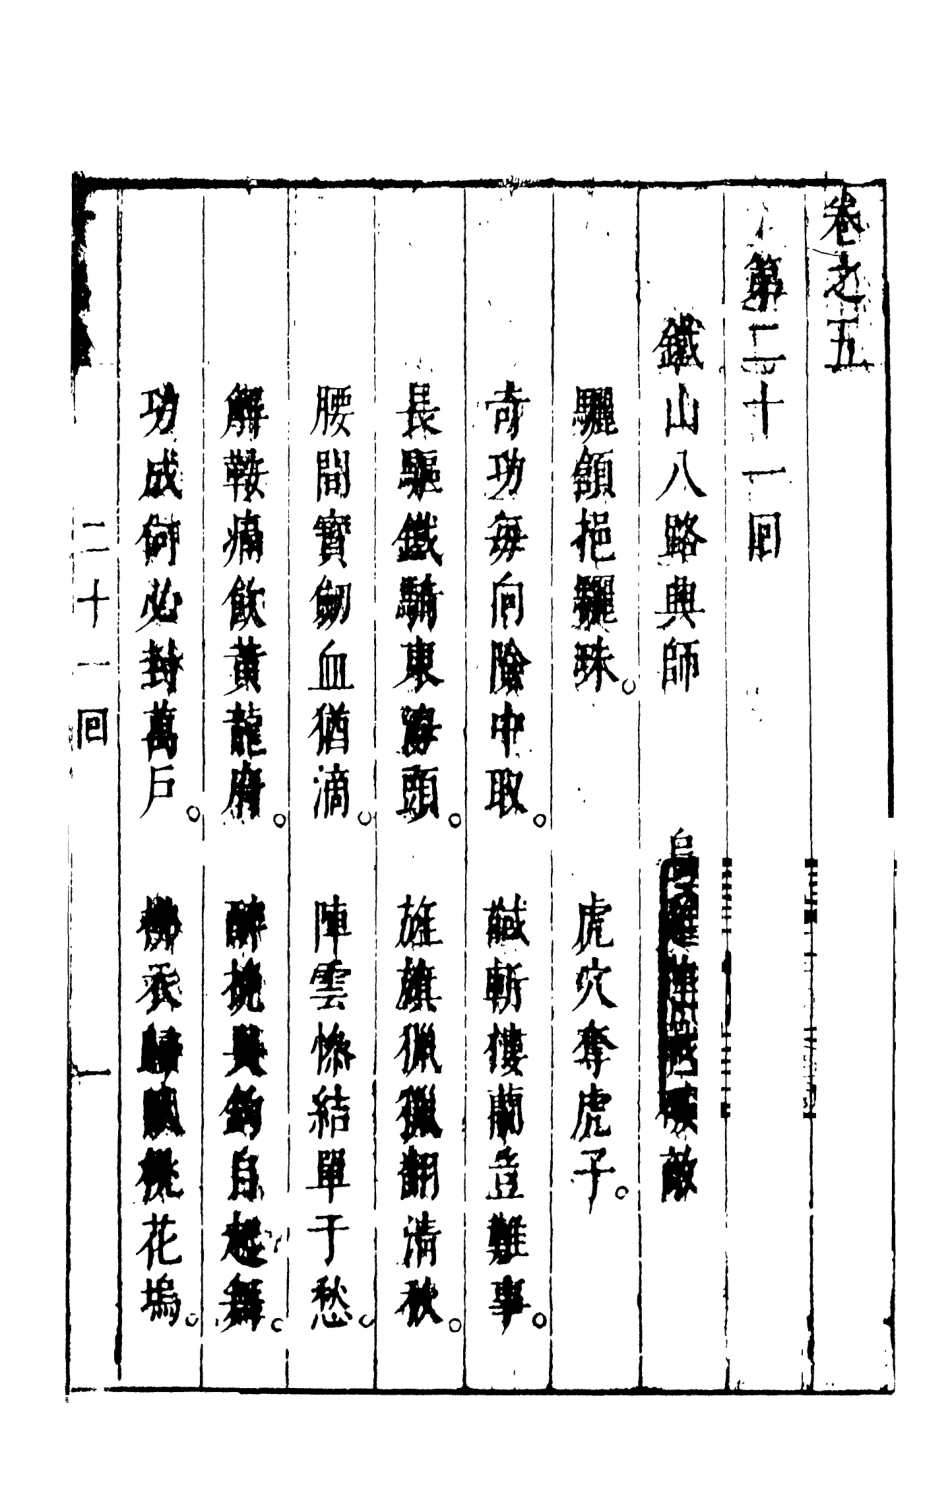 卷之五
第二十一回
鐵山八路興師　敵
驪頷挹驪珠。　虎穴奪虎子。
奇功每向險中取。　馘斬樓蘭豈難事。
長驅鐵騎東海頭。　旌旗獵獵翻清秋。
腰間寶劒血猶滴。　陣雲慘結單于愁。
解鞍痛飲黃龍府。　醉挽吳鉤自起舞。
功成何必封萬戶。　拂衣歸臥桃花塢。
二十一回　一